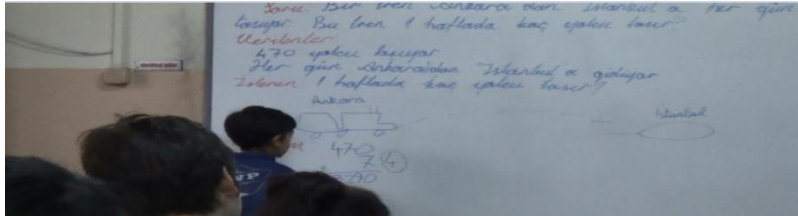 Soru: Bir tren Ankara'dan İstanbul'a her gün
taşıyor. Bu tren 1 haftada kaç yolcu taşır?
Verilenler
470 yolcu taşıyor
Her gün Ankara'dan İstanbul'a gidiyor
İstenen 1 haftada kaç yolcu taşır?
Ankara
İstanbul
470
7 4
90